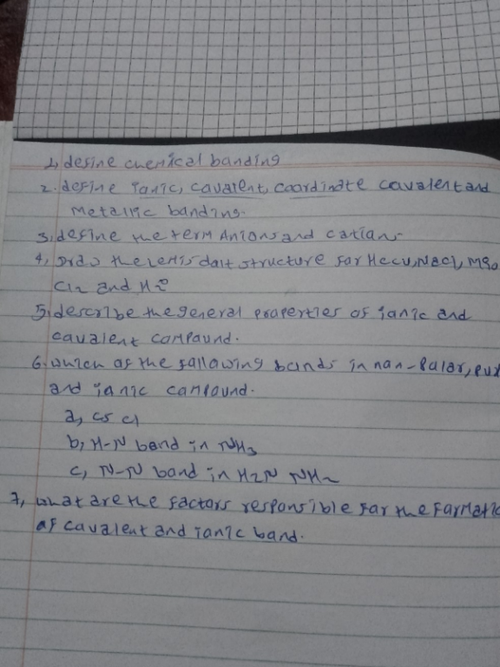 1, define chemical banding
2. define ianic, cavalent, coordinate cavalent and
metallic banding.
3, define the term Anions and catian.
4, draw the lewis dait structure far NaCl, MgO
Cl2 and H2O
5, describe the general properties of ianic and
cavalent campaund.
6. which af the fallawing bands in nan-palar,
and ianic campaund.
a, CsCl
b, H-N band in NH3
c, N-N band in H2N NH2
7, what are the factors responsible far the farmatio
af cavalent and ianic band.